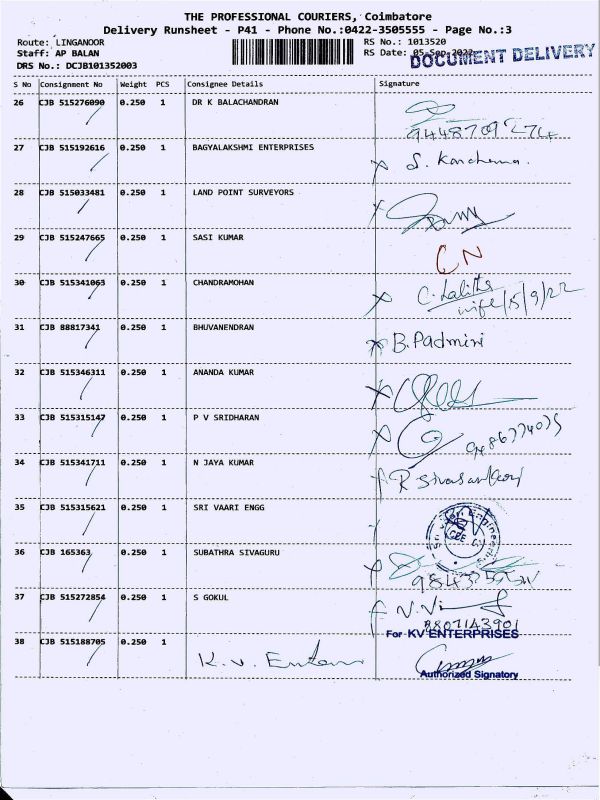 THE PROFESSIONAL COURIERS, Coimbatore
Delivery Runsheet - P41 - Phone No.:0422-3505555 - Page No.:3
Route: LINGANOOR
Staff: AP BALAN
DRS No.: DCJB101352003
RS No.: 1013520
RS Date: 05-Sep-2022
DOCUMENT DELIVERY
S No Consignment No Weight PCS Consignee Details Signature
26 CJB 515276090 0.250 1 DR K BALACHANDRAN
27 CJB 515192616 0.250 1 BAGYALAKSHMI ENTERPRISES
28 CJB 515033481 0.250 1 LAND POINT SURVEYORS
29 CJB 515247665 0.250 1 SASI KUMAR CN
30 CJB 515341063 0.250 1 CHANDRAMOHAN C. Lalitha
wife/5/9/22
31 CJB 88817341 0.250 1 BHUVANENDRAN B. Padmini
32 CJB 515346311 0.250 1 ANANDA KUMAR
33 CJB 515315147 0.250 1 P V SRIDHARAN
34 CJB 515341711 0.250 1 N JAYA KUMAR
35 CJB 515315621 0.250 1 SRI VAARI ENGG
36 CJB 165363 0.250 1 SUBATHRA SIVAGURU
37 CJB 515272854 0.250 1 S GOKUL
8807143901
For KV ENTERPRISES
38 CJB 515188705 0.250 1 K.V.
Authorized Signatory